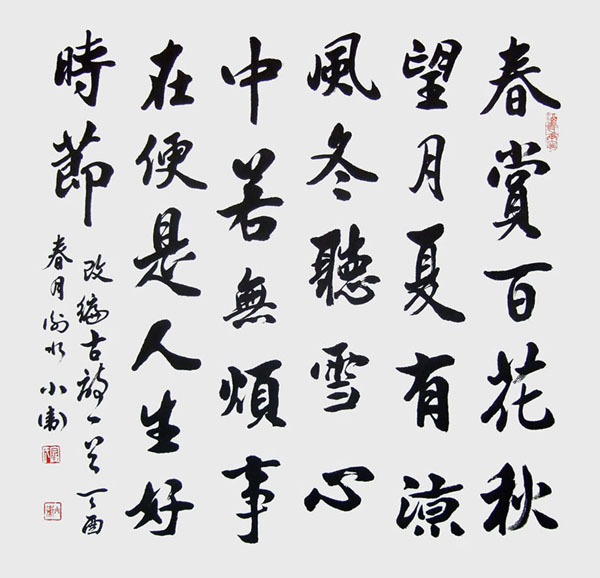 春賞百花秋
望月夏有涼
風冬聽雪心
中若無煩事
在便是人生好
時節
改編古詩一首丁酉
春月衡水小衛